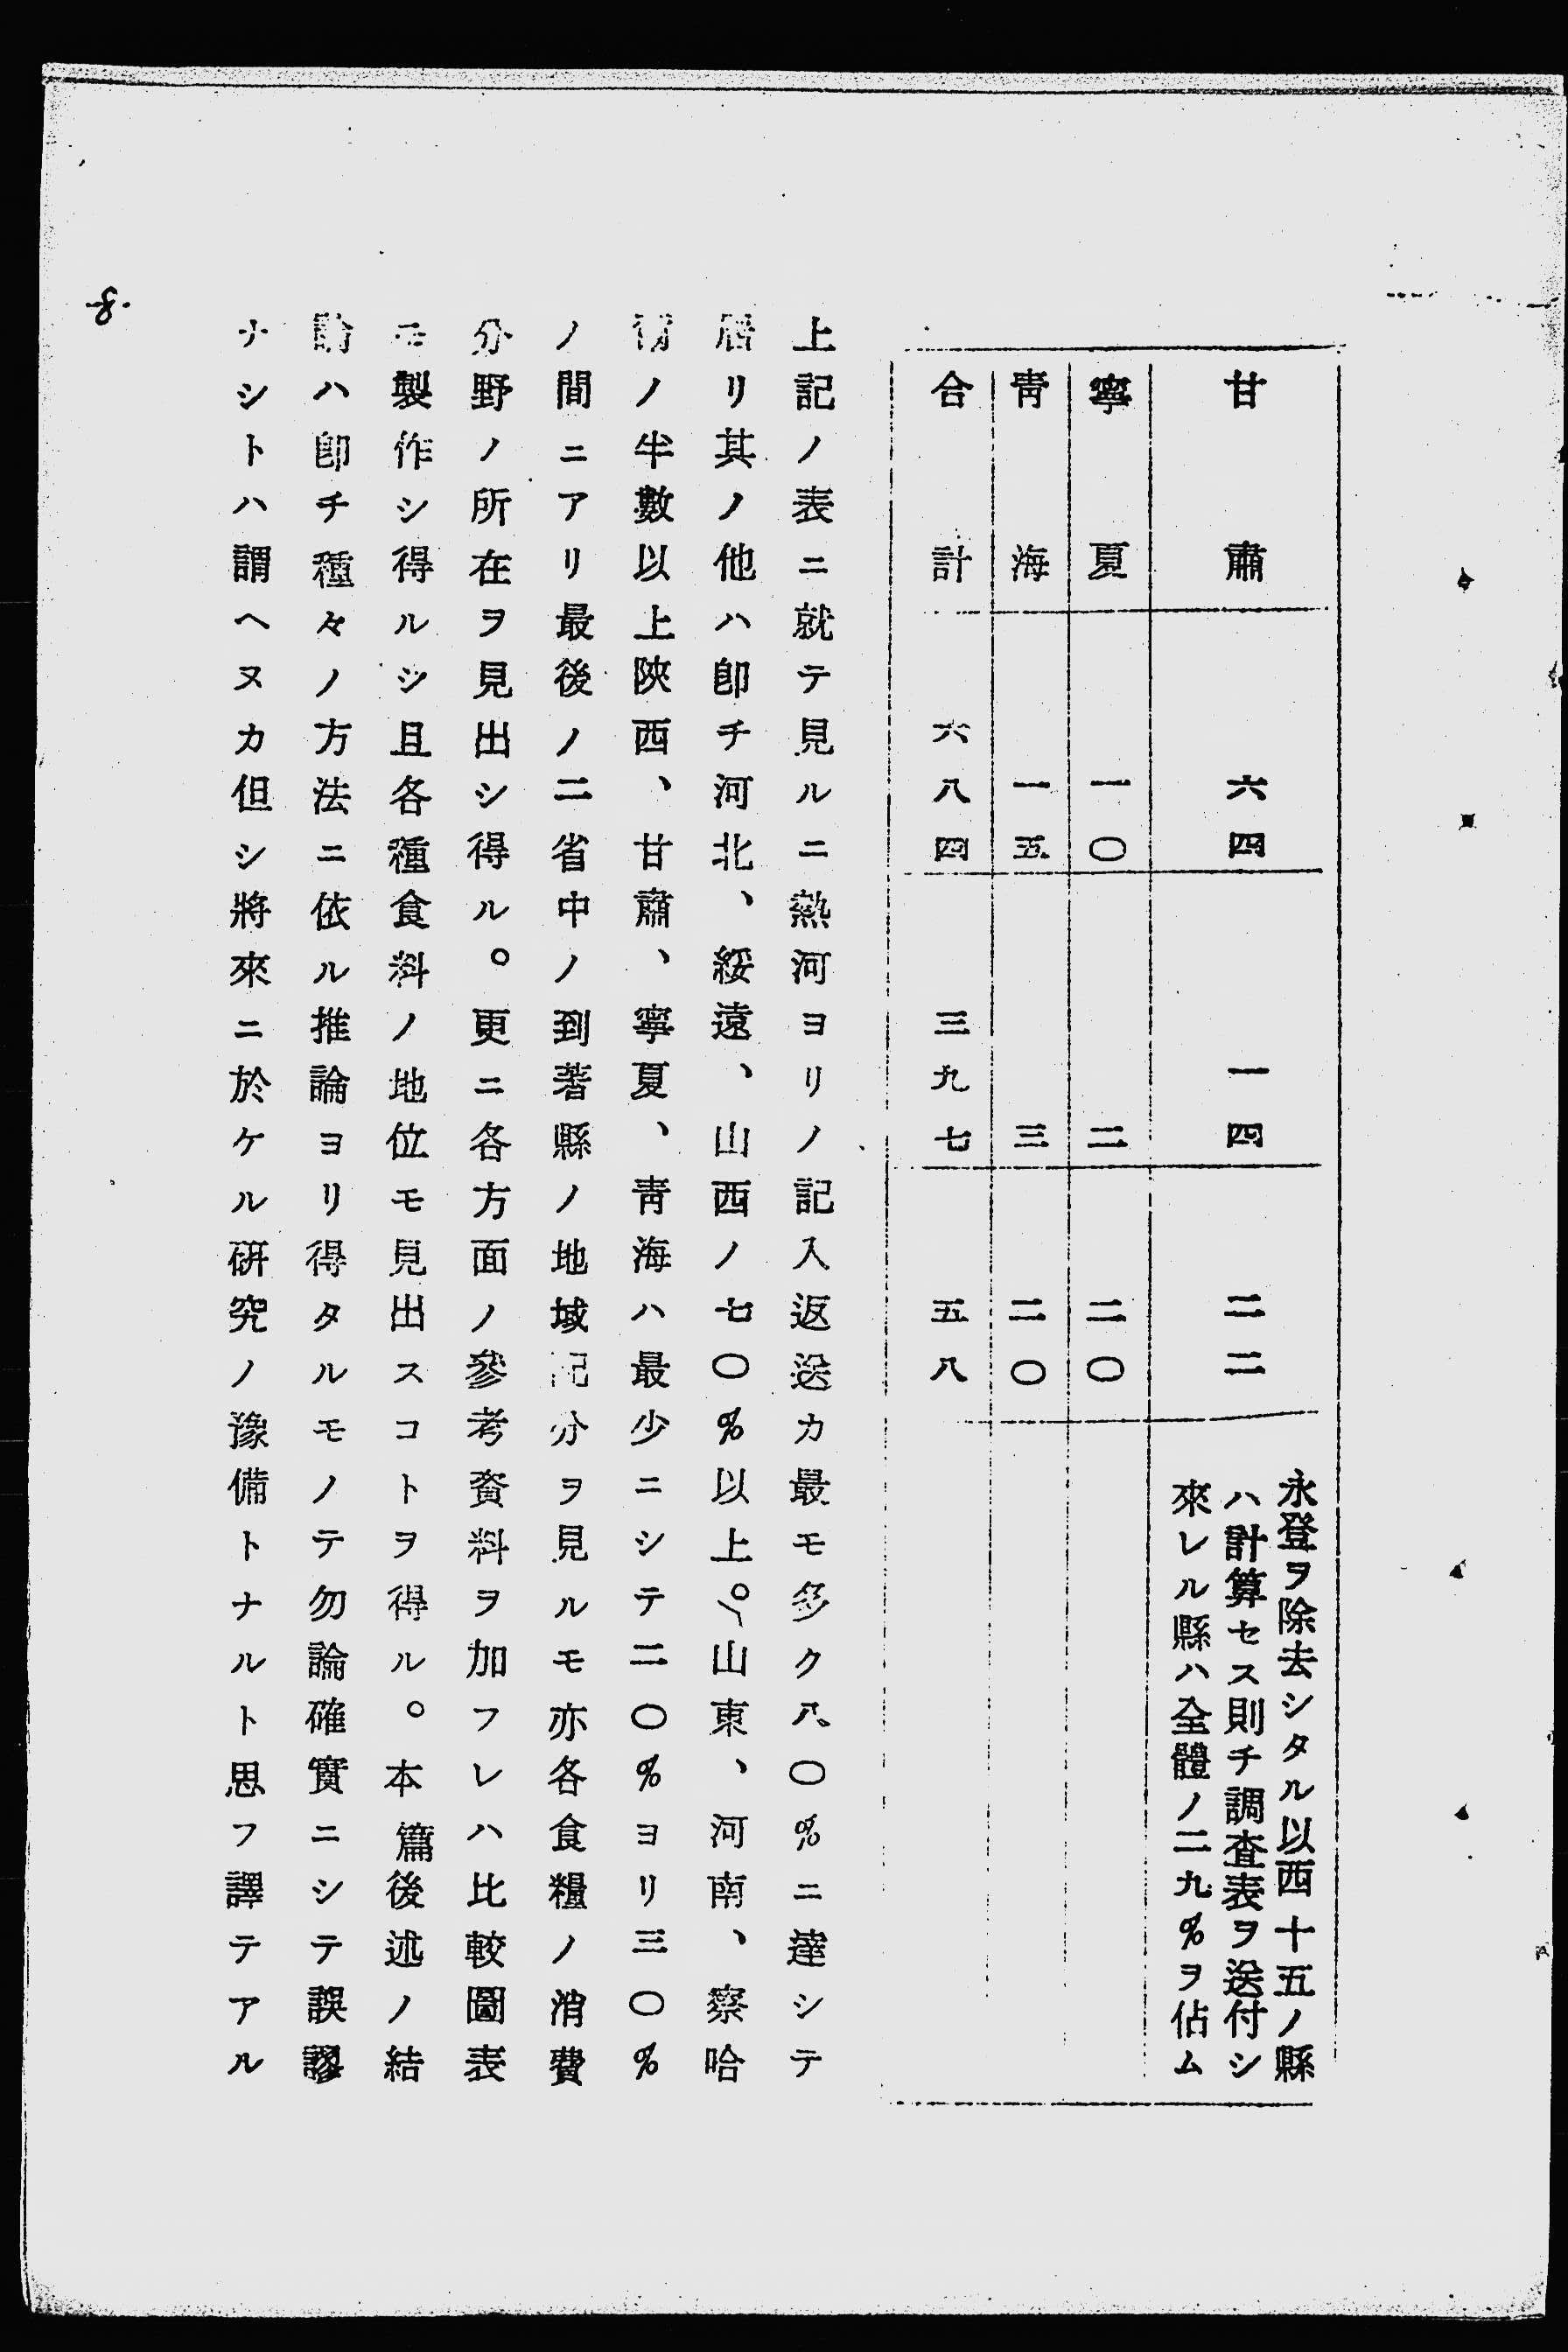 甘肅 六四 一四 二二 永登ヲ除去シタル以西十五ノ縣
ハ計算セス則チ調査表ヲ送付シ
來レル縣ハ全體ノ二九%ヲ佔ム
寧夏 一〇 二 二〇
靑海 一五 三 二〇
合計 六八四 三九七 五八
上記ノ表ニ就テ見ルニ熱河ヨリノ記入返送カ最モ多ク八〇%ニ達シテ
居リ其ノ他ハ卽チ河北、綏遠、山西ノ七〇%以上。山東、河南、察哈
ノ半數以上陝西、甘肅、寧夏、靑海ハ最少ニシテ二〇%ヨリ三〇%
ノ間ニアリ最後ノ二省中ノ到著縣ノ地域記分ヲ見ルモ亦各食糧ノ消費
分野ノ所在ヲ見出シ得ル。更ニ各方面ノ參考資料ヲ加フレハ比較圖表
モ製作シ得ルシ且各種食料ノ地位モ見出スコトヲ得ル。本篇後述ノ結
論ハ卽チ種々ノ方法ニ依ル推論ヨリ得タルモノテ勿論確實ニシテ誤謬
ナシトハ謂ヘヌカ但シ將來ニ於ケル硏究ノ豫備トナルト思フ譯テアル
-8-